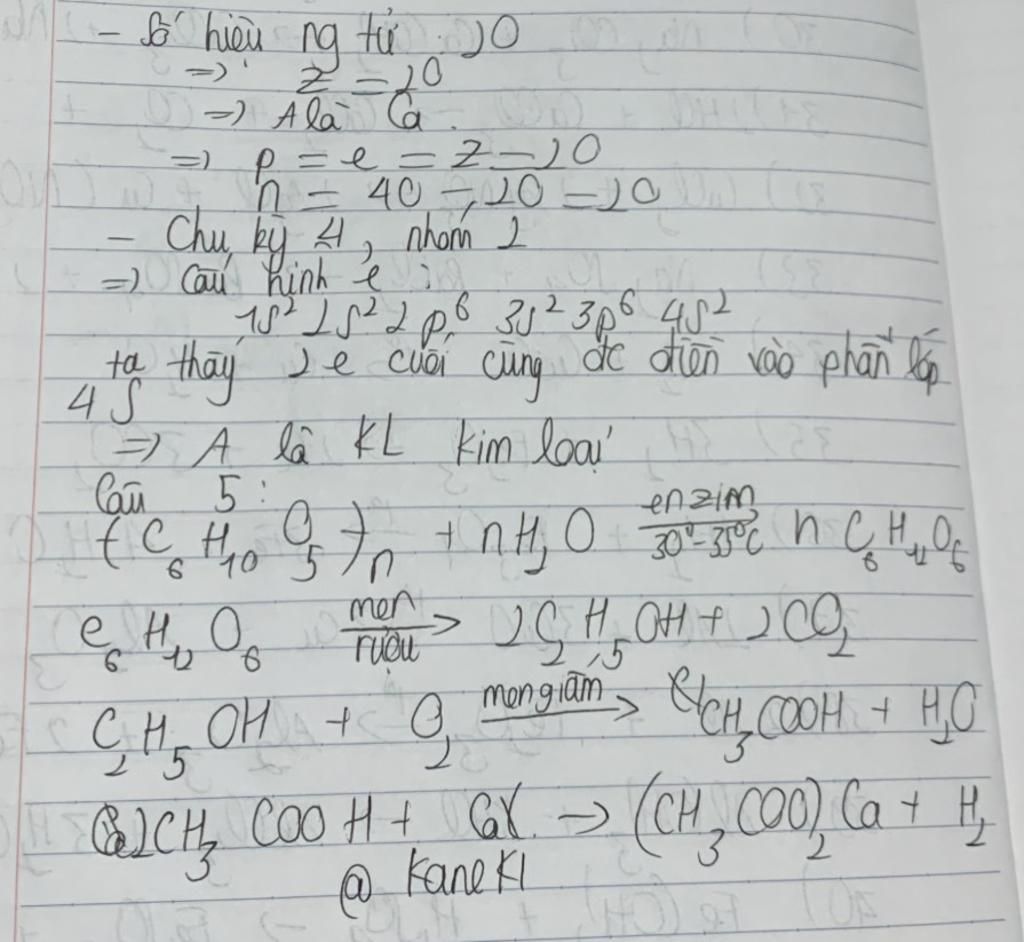 - Số hiệu ng tử : 20
=> Z = 20
=> A là Ca.
=> p = e = Z = 20
n = 40 - 20 = 20
- Chu kỳ 4, nhóm 2
=> Cấu hình e :
1s² 2s² 2p⁶ 3s² 3p⁶ 4s²
ta thấy 2 e cuối cùng đc điền vào phân lớp
4s
=> A là KL kim loại
Câu 5 :
(C₆H₁₀O₅)n + nH₂O enzim 30°-35°C n C₆H₁₂O₆
C₆H₁₂O₆ men rượu → 2C₂H₅OH + 2CO₂
C₂H₅OH + O₂ men giấm → CH₃COOH + H₂O
2CH₃COOH + Ca → (CH₃COO)₂Ca + H₂
@ KaneKI